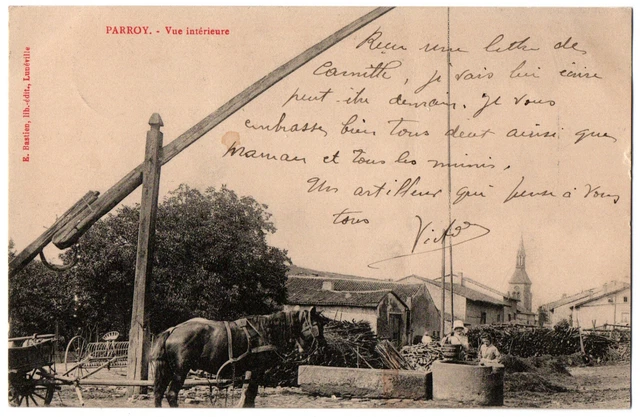 PARROY. - Vue intérieure
E. Bastien, lib.-édit., Lunéville
Reçu une lettre de
Camille, j'vais lui écrire
peut être demain. Je vous
embrasse bien tous deux ainsi que
Maman et tous les minis.
Un artilleur qui pense à vous
tous
Victor